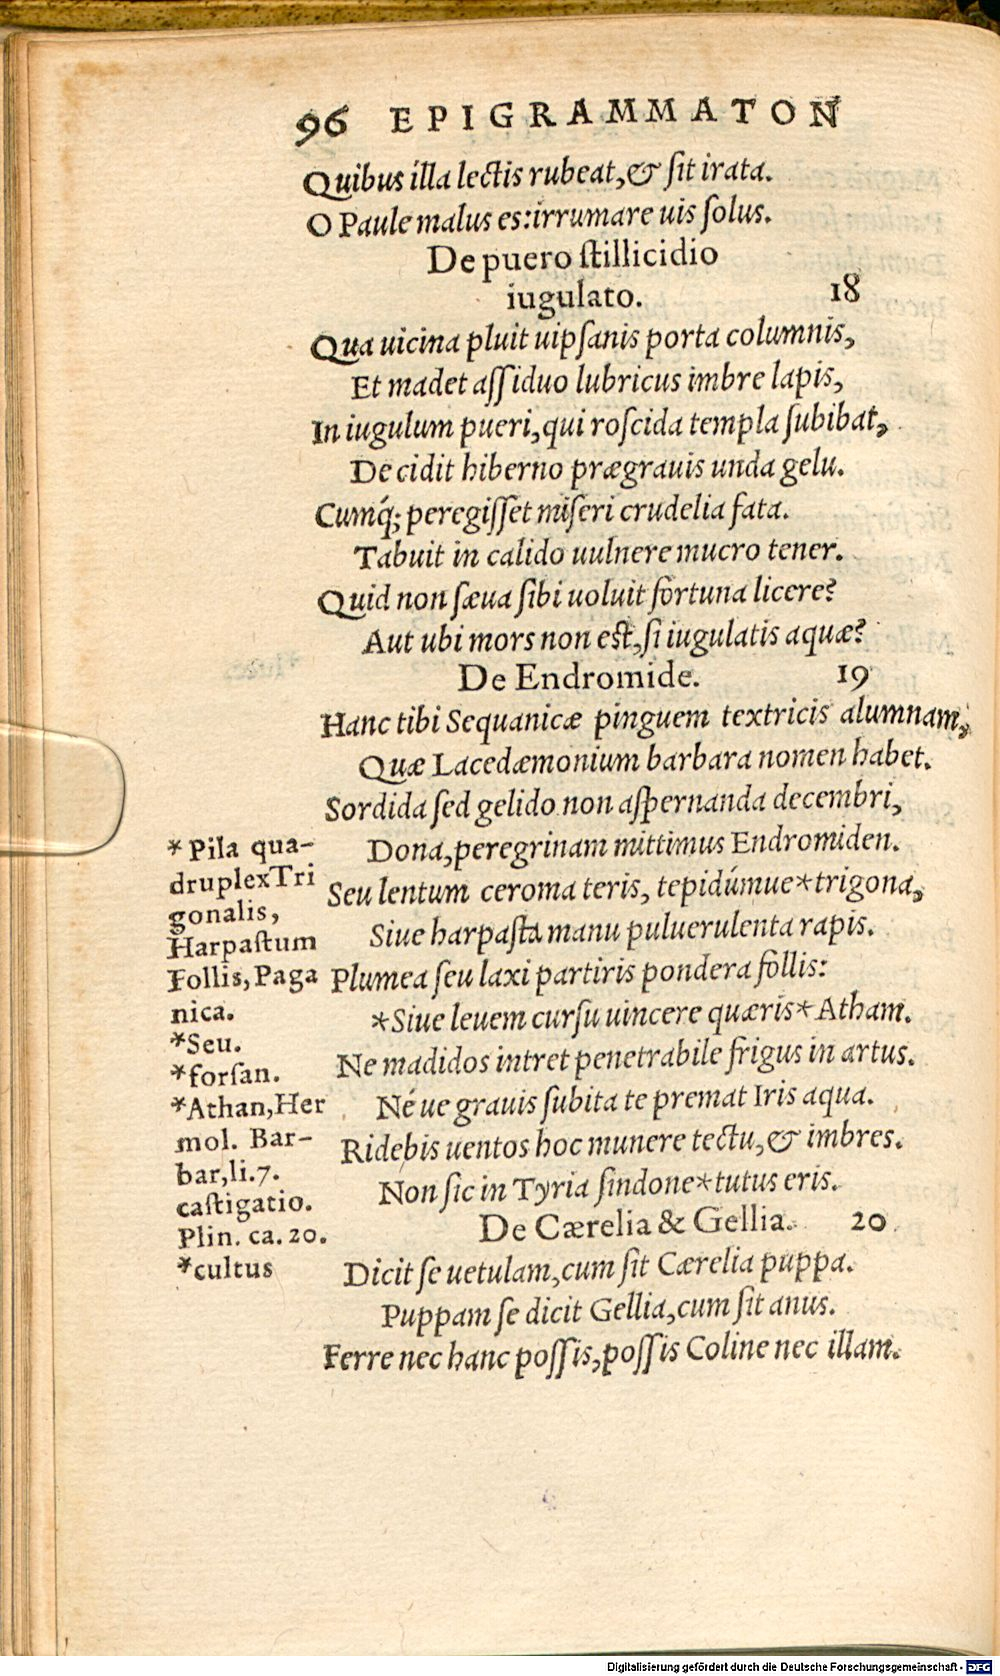 96 EPIGRAMMATON
Quibus illa lectis rubeat,& sit irata.
O Paule malus es:irrumare uis solus.
De puero stillicidio
iugulato. 18
Qua uicina pluit uipsanis porta columnis,
Et madet assiduo lubricus imbre lapis,
In iugulum pueri,qui roscida templa subibat,
Decidit hiberno prægrauis unda gelu.
Cumq́; peregisset miseri crudelia fata.
Tabuit in calido uulnere mucro tener.
Quid non sæua sibi uoluit fortuna licere?
Aut ubi mors non est,si iugulatis aquæ?
De Endromide. 19
Hanc tibi Sequanicæ pinguem textricis alumnam,
Quæ Lacedæmonium barbara nomen habet.
Sordida sed gelido non aspernanda decembri,
Dona,peregrinam mittimus Endromiden.
Seu lentum ceroma teris, tepidúmue*trigona,
Siue harpasta manu puluerulenta rapis.
Plumea seu laxi partiris pondera follis:
*Siue leuem cursu uincere quæris*Atham.
Ne madidos intret penetrabile frigus in artus.
Né ue grauis subita te premat Iris aqua.
Ridebis uentos hoc munere tectu,& imbres.
Non sic in Tyria sindone*tutus eris.
De Cærelia & Gellia. 20
Dicit se uetulam,cum sit Cærelia puppa.
Puppam se dicit Gellia,cum sit anus.
Ferre nec hanc possis,possis Coline nec illam.
*Pila qua-
druplexTri
gonalis,
Harpastum
Follis,Paga
nica.
*Seu.
*forsan.
*Athan,Her
mol. Bar-
bar,li.7.
castigatio.
Plin. ca. 20.
*cultus
Digitalisierung gefördert durch die Deutsche Forschungsgemeinschaft - DFG